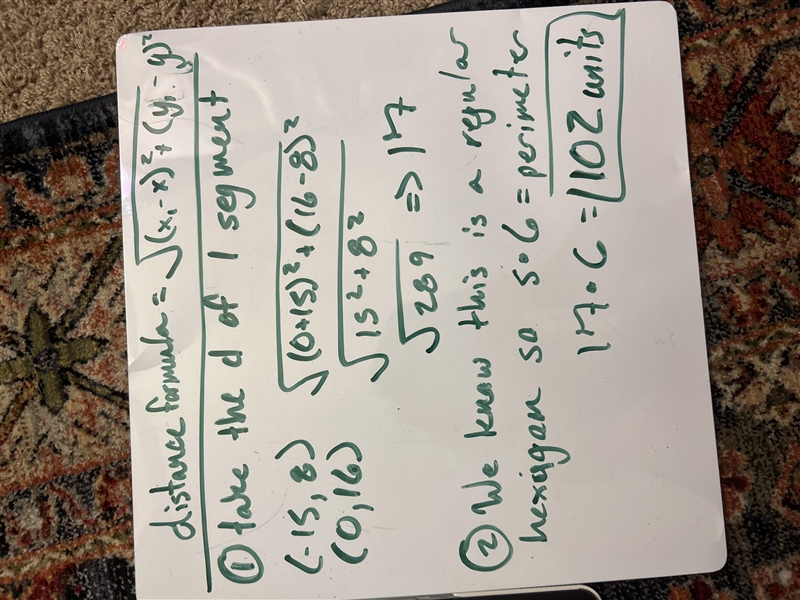 distance formula = √(x₁-x)²+(y₁-y)²
① take the d of 1 segment
(-15, 8) √(0+15)²+(16-8)²
(0, 16) √15²+8²
√289 => 17
② We know this is a regular
hexagon so s•6 = perimeter
17•6 = 102 units